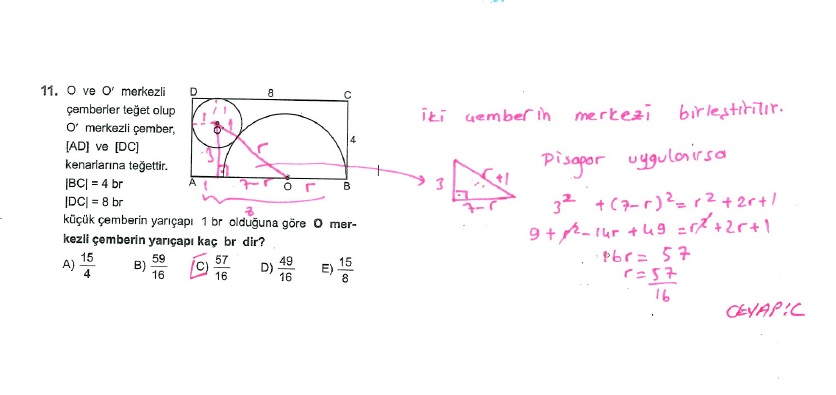 11. O ve O' merkezli
çemberler teğet olup
O' merkezli çember,
[AD] ve [DC]
kenarlarına teğettir.
|BC| = 4 br
|DC| = 8 br
küçük çemberin yarıçapı 1 br olduğuna göre O mer-
kezli çemberin yarıçapı kaç br dir?
A) 15/4 B) 59/16 C) 57/16 D) 49/16 E) 15/8
D 8 C
1
1 1
r
3 4
A 1 7-r O r B
8
iki çemberin merkezi birleştirilir.
Pisagor uygulanırsa
3 r+1
7-r
3² + (7-r)² = r² + 2r + 1
9 + r² - 14r + 49 = r² + 2r + 1
16r = 57
r = 57/16
CEVAP: C